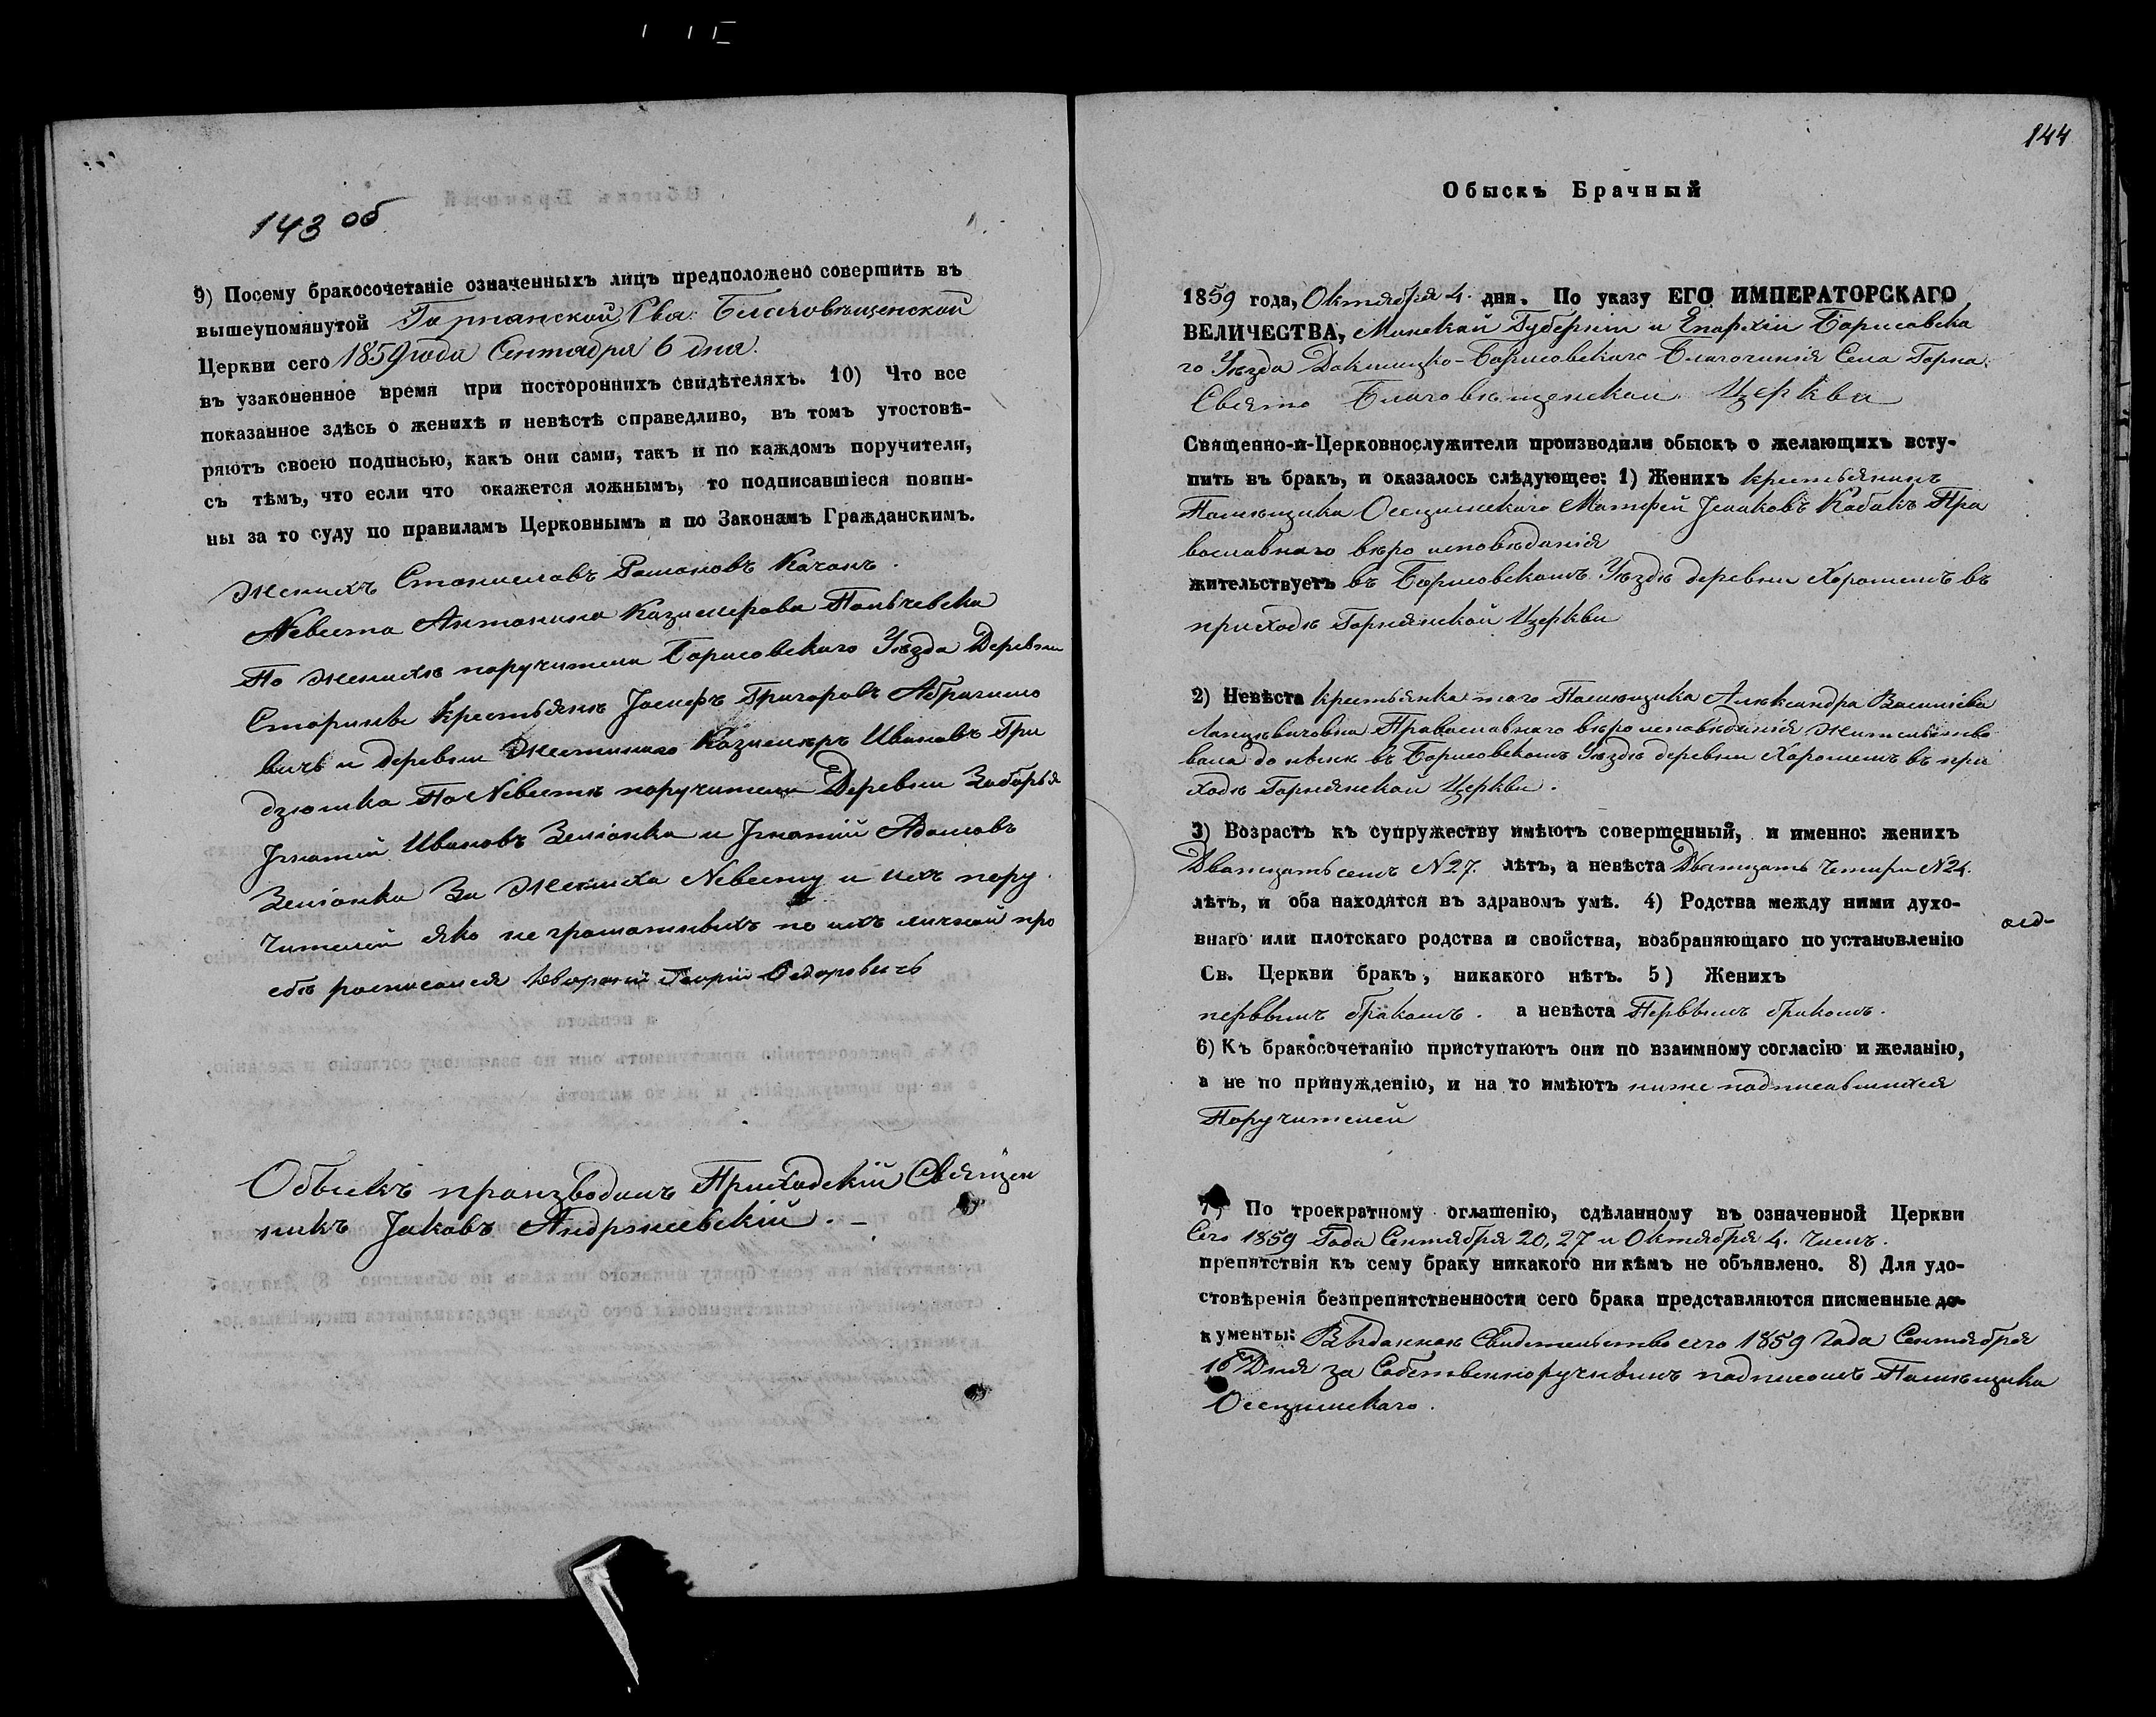 143 об
9) Посему бракосочетаніе означенныхъ лицъ предположено совершить въ
вышеупомянутой Горнанской Свя: Благовѣщенской
Церкви сего 1859 года Сентября 6 дня.
въ узаконенное время при постороннихъ свидѣтеляхъ. 10) Что все
показанное здѣсь о женихѣ и невѣстѣ справедливо, въ томъ утостовѣ-
ряютъ своею подписью, какъ они сами, такъ и по каждомъ поручители,
съ тѣмъ, что если что окажется ложнымъ, то подписавшіеся повин-
ны за то суду по правиламъ Церковнымъ и по Законамъ Гражданскимъ.
Женихъ Станиславъ Романовъ Качанъ.
Невеста Антонина Казимерова
По женихѣ поручители Борисовскаго Уѣзда Деревни
крестьянъ Іосифъ Григоровъ Абрамо
вичъ и деревни Казимѣръ Ивановъ Гри
дзюшка По Невестѣ поручители Деревни Заборья
Игнатій Ивановъ Зміонка и Игнатій Адамовъ
Зміонка За Жениха Невесту и ихъ пору
чителей яко не грамотныхъ по ихъ личной про
сбѣ росписался Дворянинъ Георгій Федоровичъ
Обыскъ производилъ Приходскій Священ
никъ Іаковъ Андржиевскій. –
144
Обыскъ Брачный
1859 года, Октября 4. дня. По указу ЕГО ИМПЕРАТОРСКАГО
ВЕЛИЧЕСТВА, Минской Губерніи и Епархіи Борисовска
го Уѣзда Докшицко-Борисовскаго Благочинія Села Горна.
Свято Благовѣщенской Церкви
Священно-и-Церковнослужители производили обыскъ о желающихъ всту-
пить въ бракъ, и оказалось слѣдующее: 1) Женихъ крестьянинъ
Помѣщика Матфей Кабакъ Пра
вославнаго вѣро исповѣданія
жительствуетъ въ Борисовскомъ Уѣздѣ деревни Хорошемъ въ
приходѣ Горнянской Церкви
2) Невѣста крестьянка того Помѣщика Александра Василіева
Православнаго вѣро исповѣданія жительство
вала до нынѣ въ Борисовскомъ Уѣздѣ деревни Хорошемъ въ при
ходѣ Горнянской Церкви.
3) Возрастъ къ супружеству имѣютъ совершенный, и именно: женихъ
Дватцать семъ N 27. лѣтъ, а невѣста Дватцать Четыри N 24.
лѣтъ, и оба находятся въ здравомъ умѣ. 4) Родства между ними духо-
внаго или плотскаго родства и свойства, возбраняющаго по установленію
Св. Церкви бракъ, никакого нѣтъ. 5) Женихъ
первымъ бракомъ. а невѣста Первымъ бракомъ.
6) Къ бракосочетанію приступаютъ они по взаимному согласію и желанію,
а не по принужденію, и на то имѣютъ ниже подписавшихся
Поручителей
7) По троекратному оглашенію, сдѣланному въ означенной Церкви
Сего 1859 Года Сентября 20, 27 и Октября 4. Числъ.
препятствія къ сему браку никакого ни кѣмъ не объявлено. 8) Для удо-
стовѣренія безпрепятственности сего брака представляются писменные до-
кументы: Выданное Свидетельство сего 1859 Года Сентября
16 Дня за Собственноручнымъ подписомъ Помѣщика